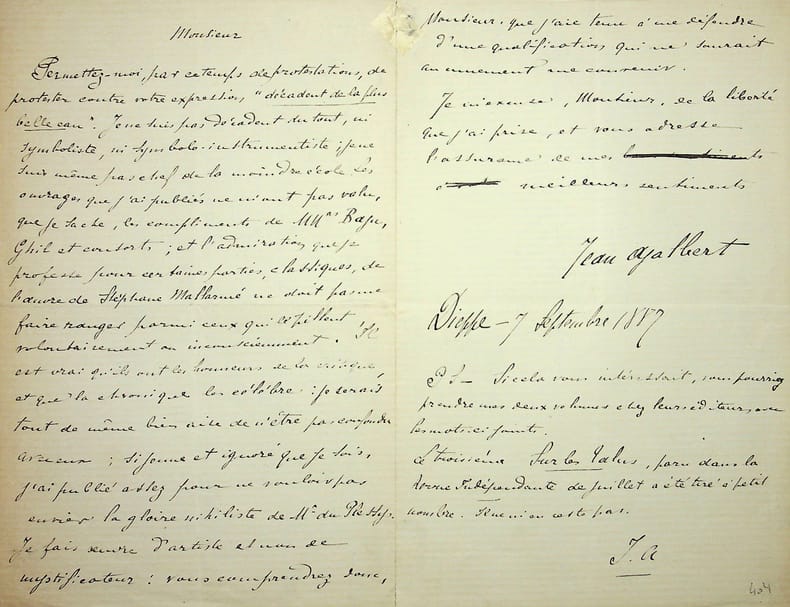 Monsieur
Permettez-moi, par ce temps de protestations, de
protester contre votre expression, "décadent de la plus
belle eau". Je ne suis pas décadent du tout, ni
symboliste, ni symbolo-instrumentiste; je ne
suis même pas chef de la moindre école. Les
ouvrages que j'ai publiés ne m'ont pas valu,
que je sache, les compliments de MMrs Baju,
Ghil et consorts; et l'admiration que je
professe pour certaines parties, classiques, de
l'œuvre de Stéphane Mallarmé ne doit pas me
faire ranger parmi ceux qui le pillent
volontairement ou inconsciemment. Il
est vrai qu'ils ont les honneurs de la critique,
et que la chronique les célèbre: je serais
tout de même bien aise de n'être pas confondu
avec eux; si jeune et ignoré que je sois,
j'ai publié assez pour ne vouloir pas
envier la gloire nihiliste de Mr du Plessys.
Je fais œuvre d'artiste et non de
mystificateur: vous comprendrez donc,
Monsieur, que j'aie tenu à me défendre
d'une qualification qui ne saurait
aucunement me convenir.
Je m'excuse, Monsieur, de la liberté
que j'ai prise, et vous adresse
l'assurance de mes
meilleurs sentiments
Jean Ajalbert
Dieppe - 7 Septembre 1887
PS - Si cela vous intéressait, vous pourriez
prendre mes deux volumes chez leurs éditeurs, avec
les mots ci-joints.
Le troisième Sur les Talus, paru dans la
Revue Indépendante de juillet a été tiré à petit
nombre. Il ne m'en reste pas.
J. A
404